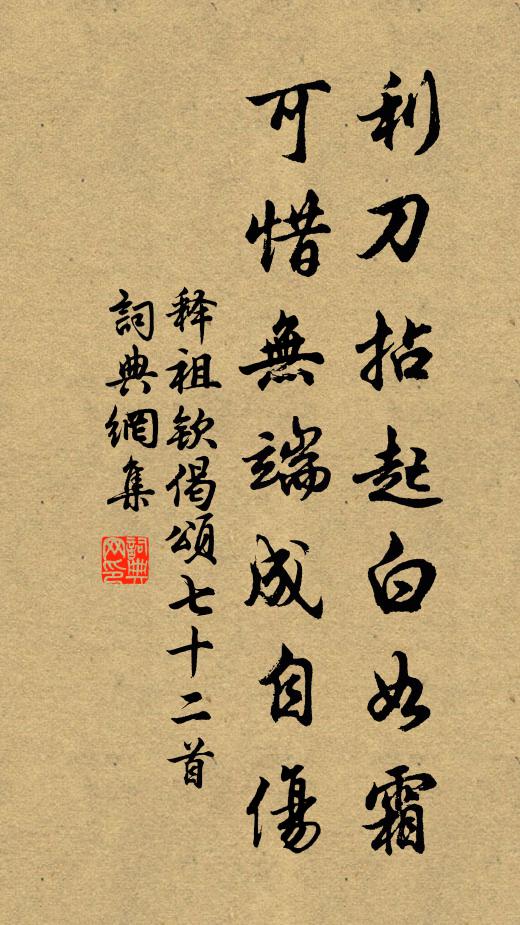 利刀拈起白如霜
可惜無端成自傷
释祖欽偈頌七十二首
詞典網集
詞典網印